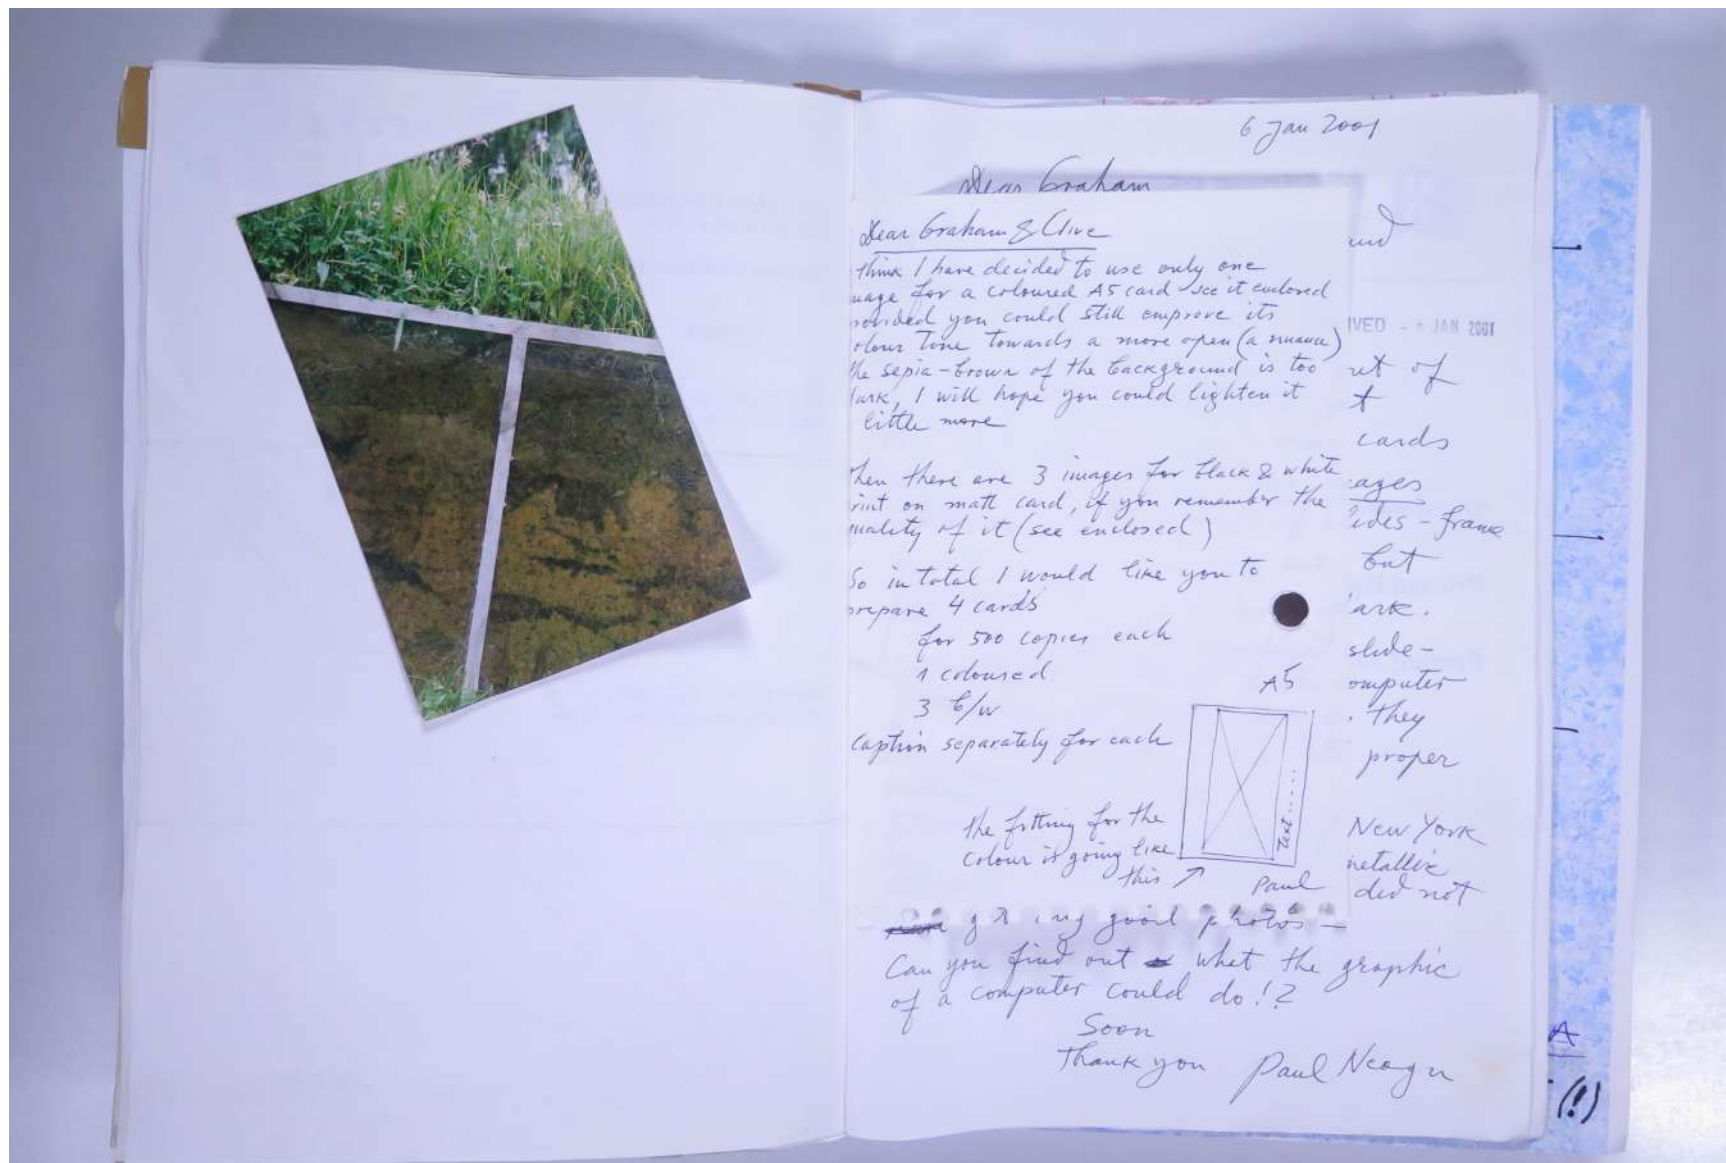 6 Jan 2001
Dear Graham
Dear Graham & Clive
think I have decided to use only one
uage for a coloured A5 card see it enclosed
rovided you could still emprove its
olour tone towards a more open (a nuance)
he sepia-brown of the background is too
ark, I will hope you could lighten it
little more
hen there are 3 images for black & white
rint on matt card, if you remember the
uality of it (see enclosed)
So in total I would like you to
prepare 4 cards
for 500 copies each
1 coloured
3 b/w
Caption separately for each
A5
text......
the fitting for the
colour is going like
this
Paul
und
IVED - JAN 2001
ut of
t
cards
ages
ides - frame
but
ark.
slide-
omputer
. they
proper
New York
metallic
did not
good photos -
Can you find out what the graphic
of a computer could do!?
Soon
Thank you Paul Neagu
A
(!)